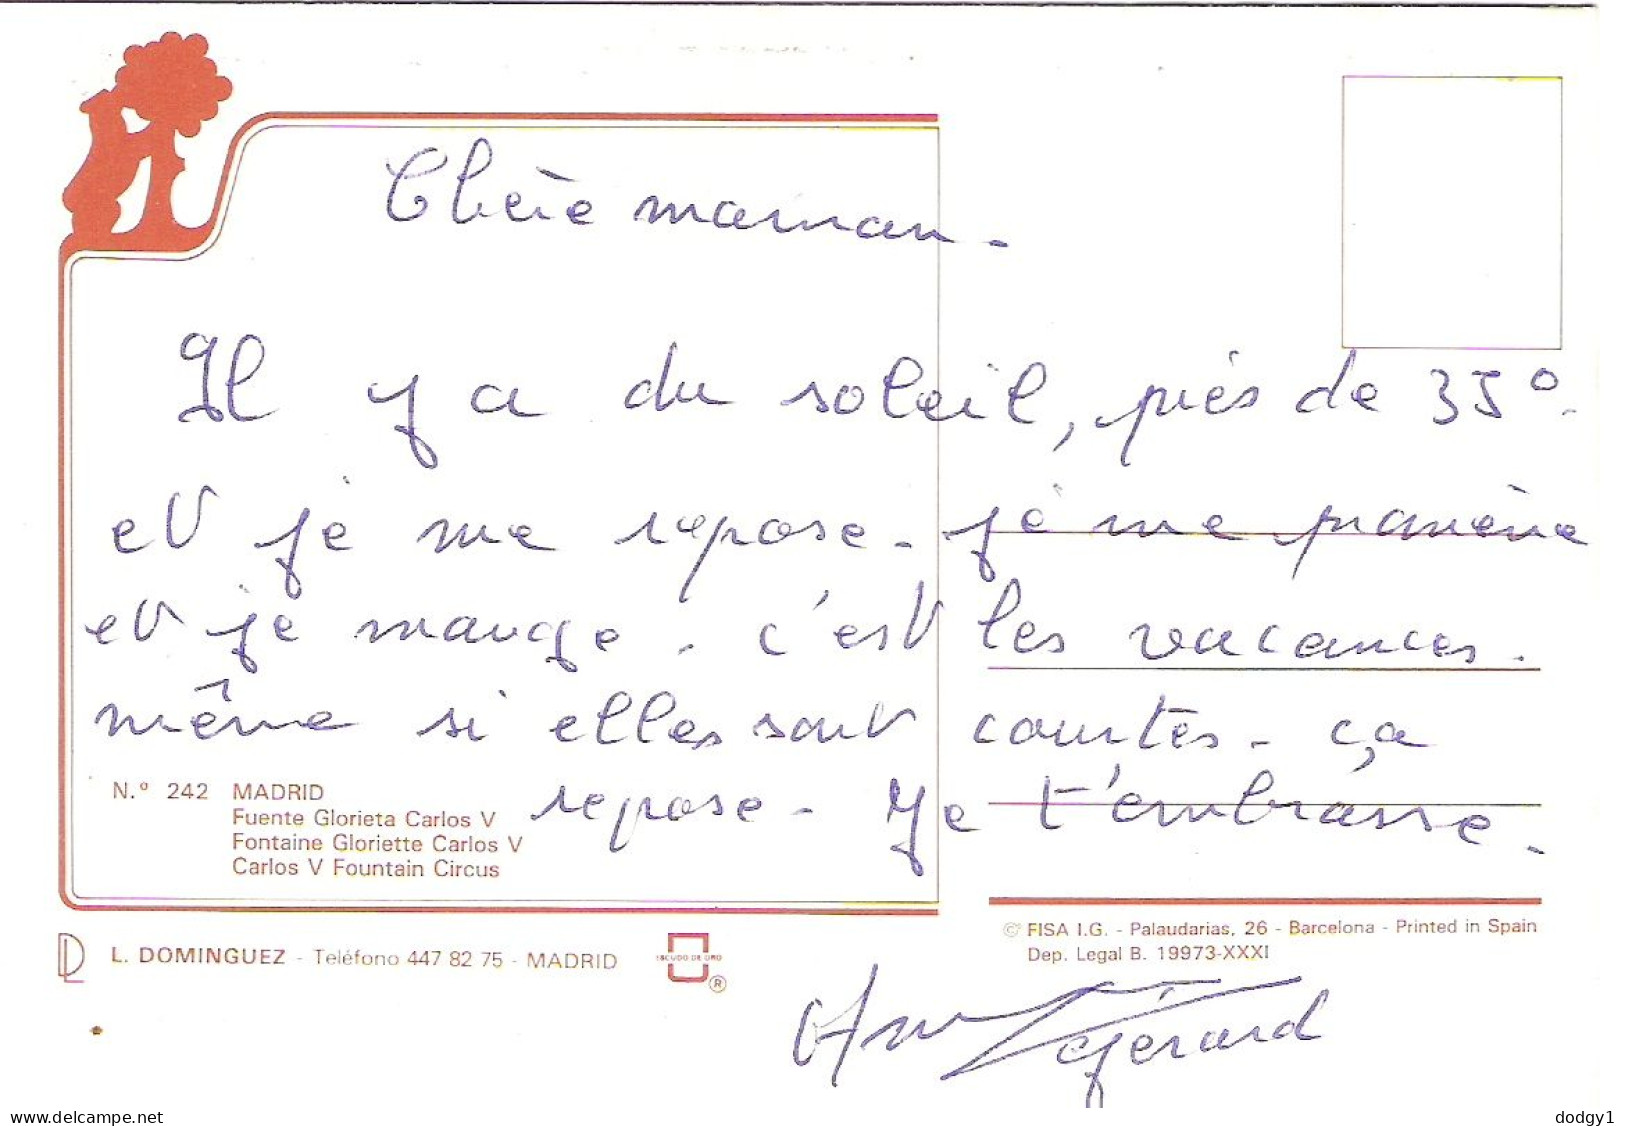 Chère maman.
Il y a du soleil, près de 35°.
et je me repose. je me promène
et je mange. c'est les vacances.
même si elles sont courtes. ça
repose. Je t'embrasse.
N.º 242 MADRID
Fuente Glorieta Carlos V
Fontaine Gloriette Carlos V
Carlos V Fountain Circus
L. DOMINGUEZ - Teléfono 447 82 75 - MADRID
ESCUDO DE ORO
®
© FISA I.G. - Palaudarias, 26 - Barcelona - Printed in Spain
Dep. Legal B. 19973-XXXI
Gérard
www.delcampe.net
dodgy1